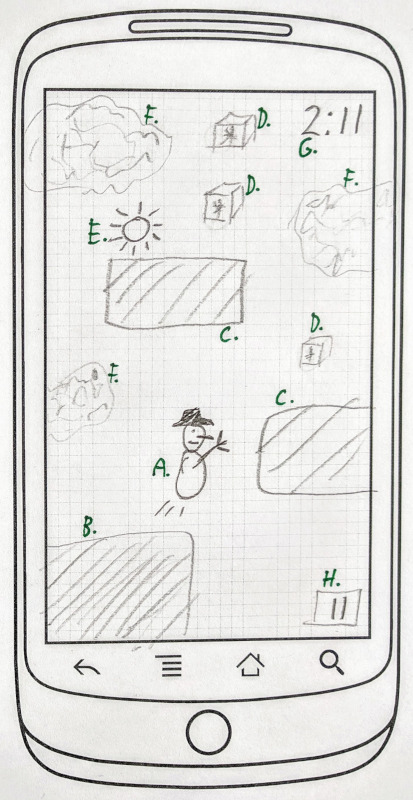 F.
D.
2:11
G.
D.
F.
E.
C.
D.
F.
C.
A.
B.
H.